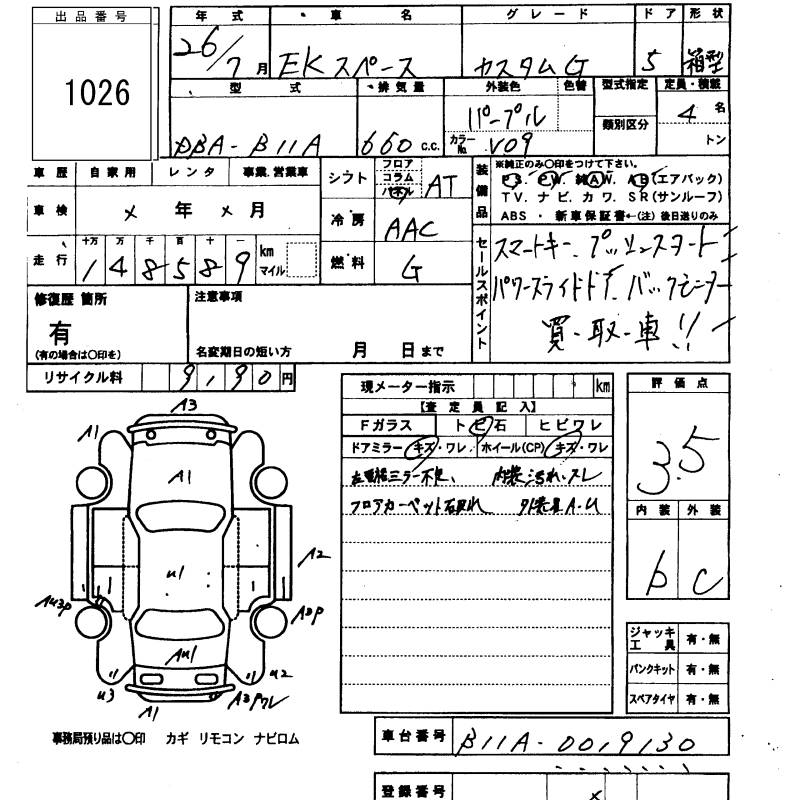 出品番号 年式 車名 グレード ドア 形状
1026 26/7月 EKスペース カスタムG 5 箱型
型式 排気量 外装色 色替 型式指定 定員・積載
DBA-B11A 660c.c. パープル 類別区分 4名
カラーNo. V09 トン
車歴 自家用 レンタ 事業.営業車 シフト フロア コラム パネル AT
装備品 ※純正のみ〇印をつけて下さい。
PS. PW. 純AW. AB(エアバック)
TV. ナビ. カワ. SR(サンルーフ)
ABS ・ 新車保証書←(注)後日送りのみ
車検 × 年 × 月 冷房 AAC
走行 十万 万 千 百 十 一 km マイル 燃料 G
148589
セールスポイント スマートキー. プッシュスタート
パワースライドドア. バックモニター
買・取・車!!
修復歴 箇所 注意事項
有
(有の場合は〇印を) 名変期日の短い方 月 日まで
リサイクル料 9,190円
現メーター指示 km 評価点
【査定員記入】 3.5
Fガラス トビ石 ヒビワレ
ドアミラー キズ・ワレ ホイール(CP) キズ・ワレ
内装汚れ.スレ
フロアカーペット 外装A.U
内装 外装
b C
A3
A1
A1
U1
A2
AU3P
A2P
AU1
U3
U2
A1
A3Pワレ
ジャッキ工具 有・無
パンクキット 有・無
スペアタイヤ 有・無
事務局預り品は〇印 カギ リモコン ナビロム
車台番号 B11A-0019130
登録番号 ×